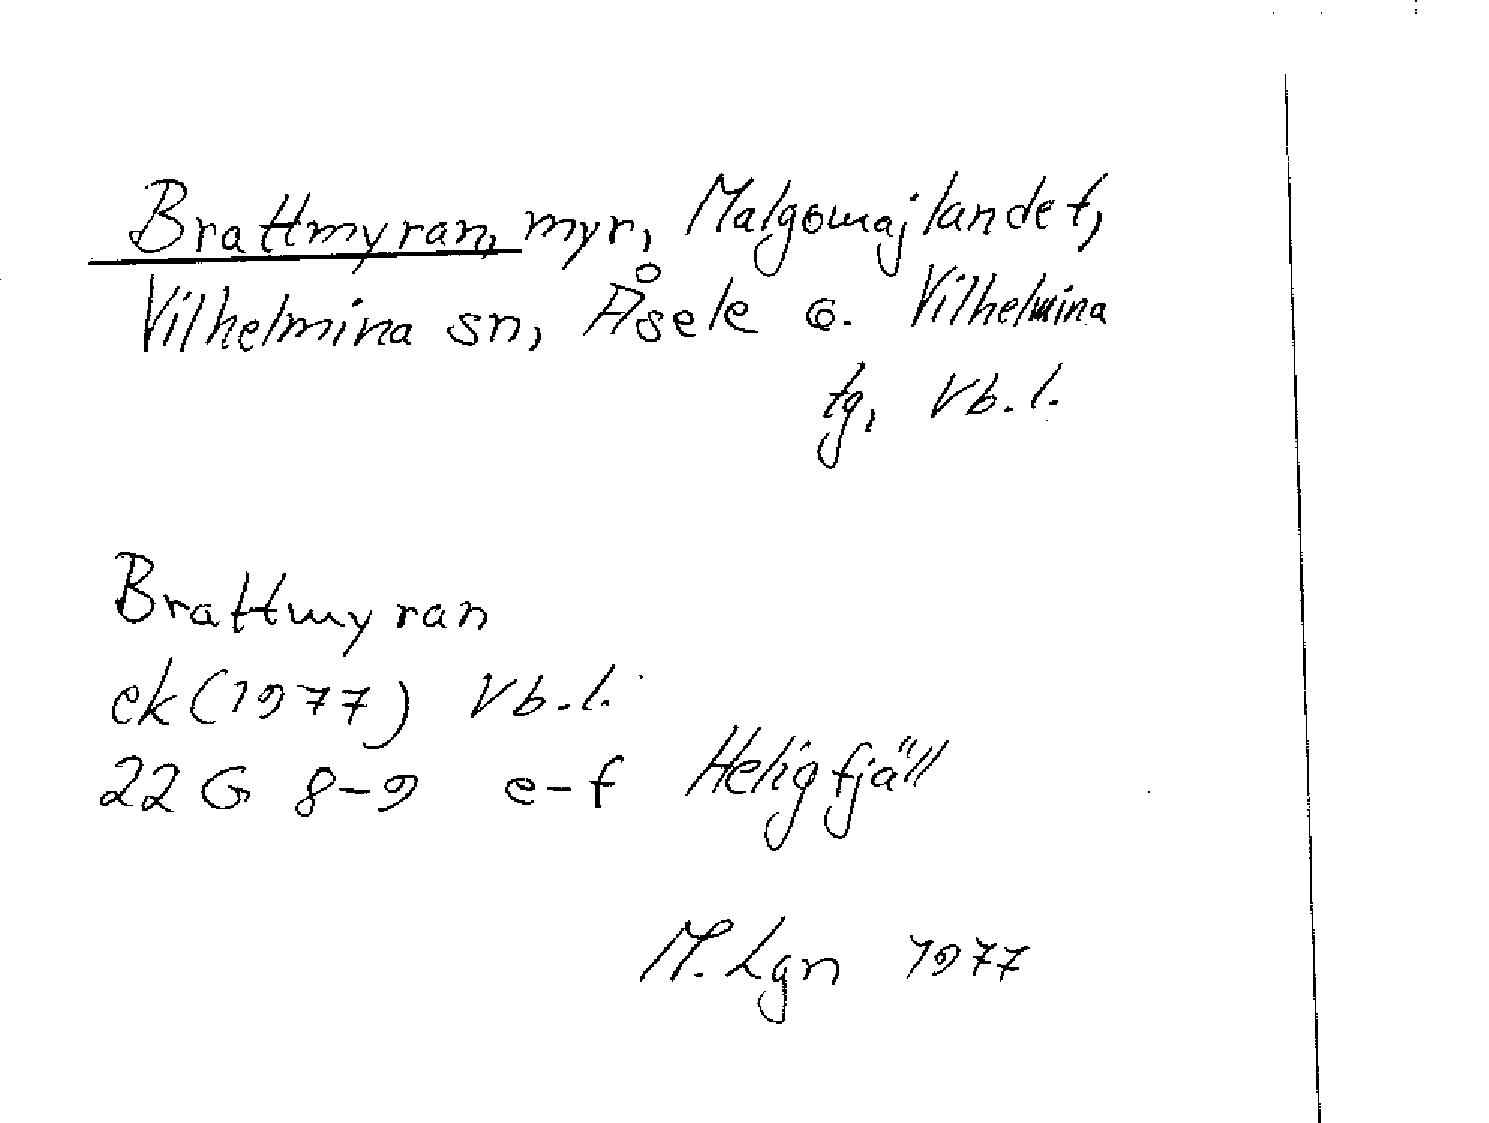 Brattmyran, myr, Malgomajlandet,
Vilhelmina sn, Åsele o. Vilhelmina
tg, Vb. l.
Brattmyran
ek (1977) Vb. l.
22 G 8-9 e-f Heligfjäll
M. Lgn 1977